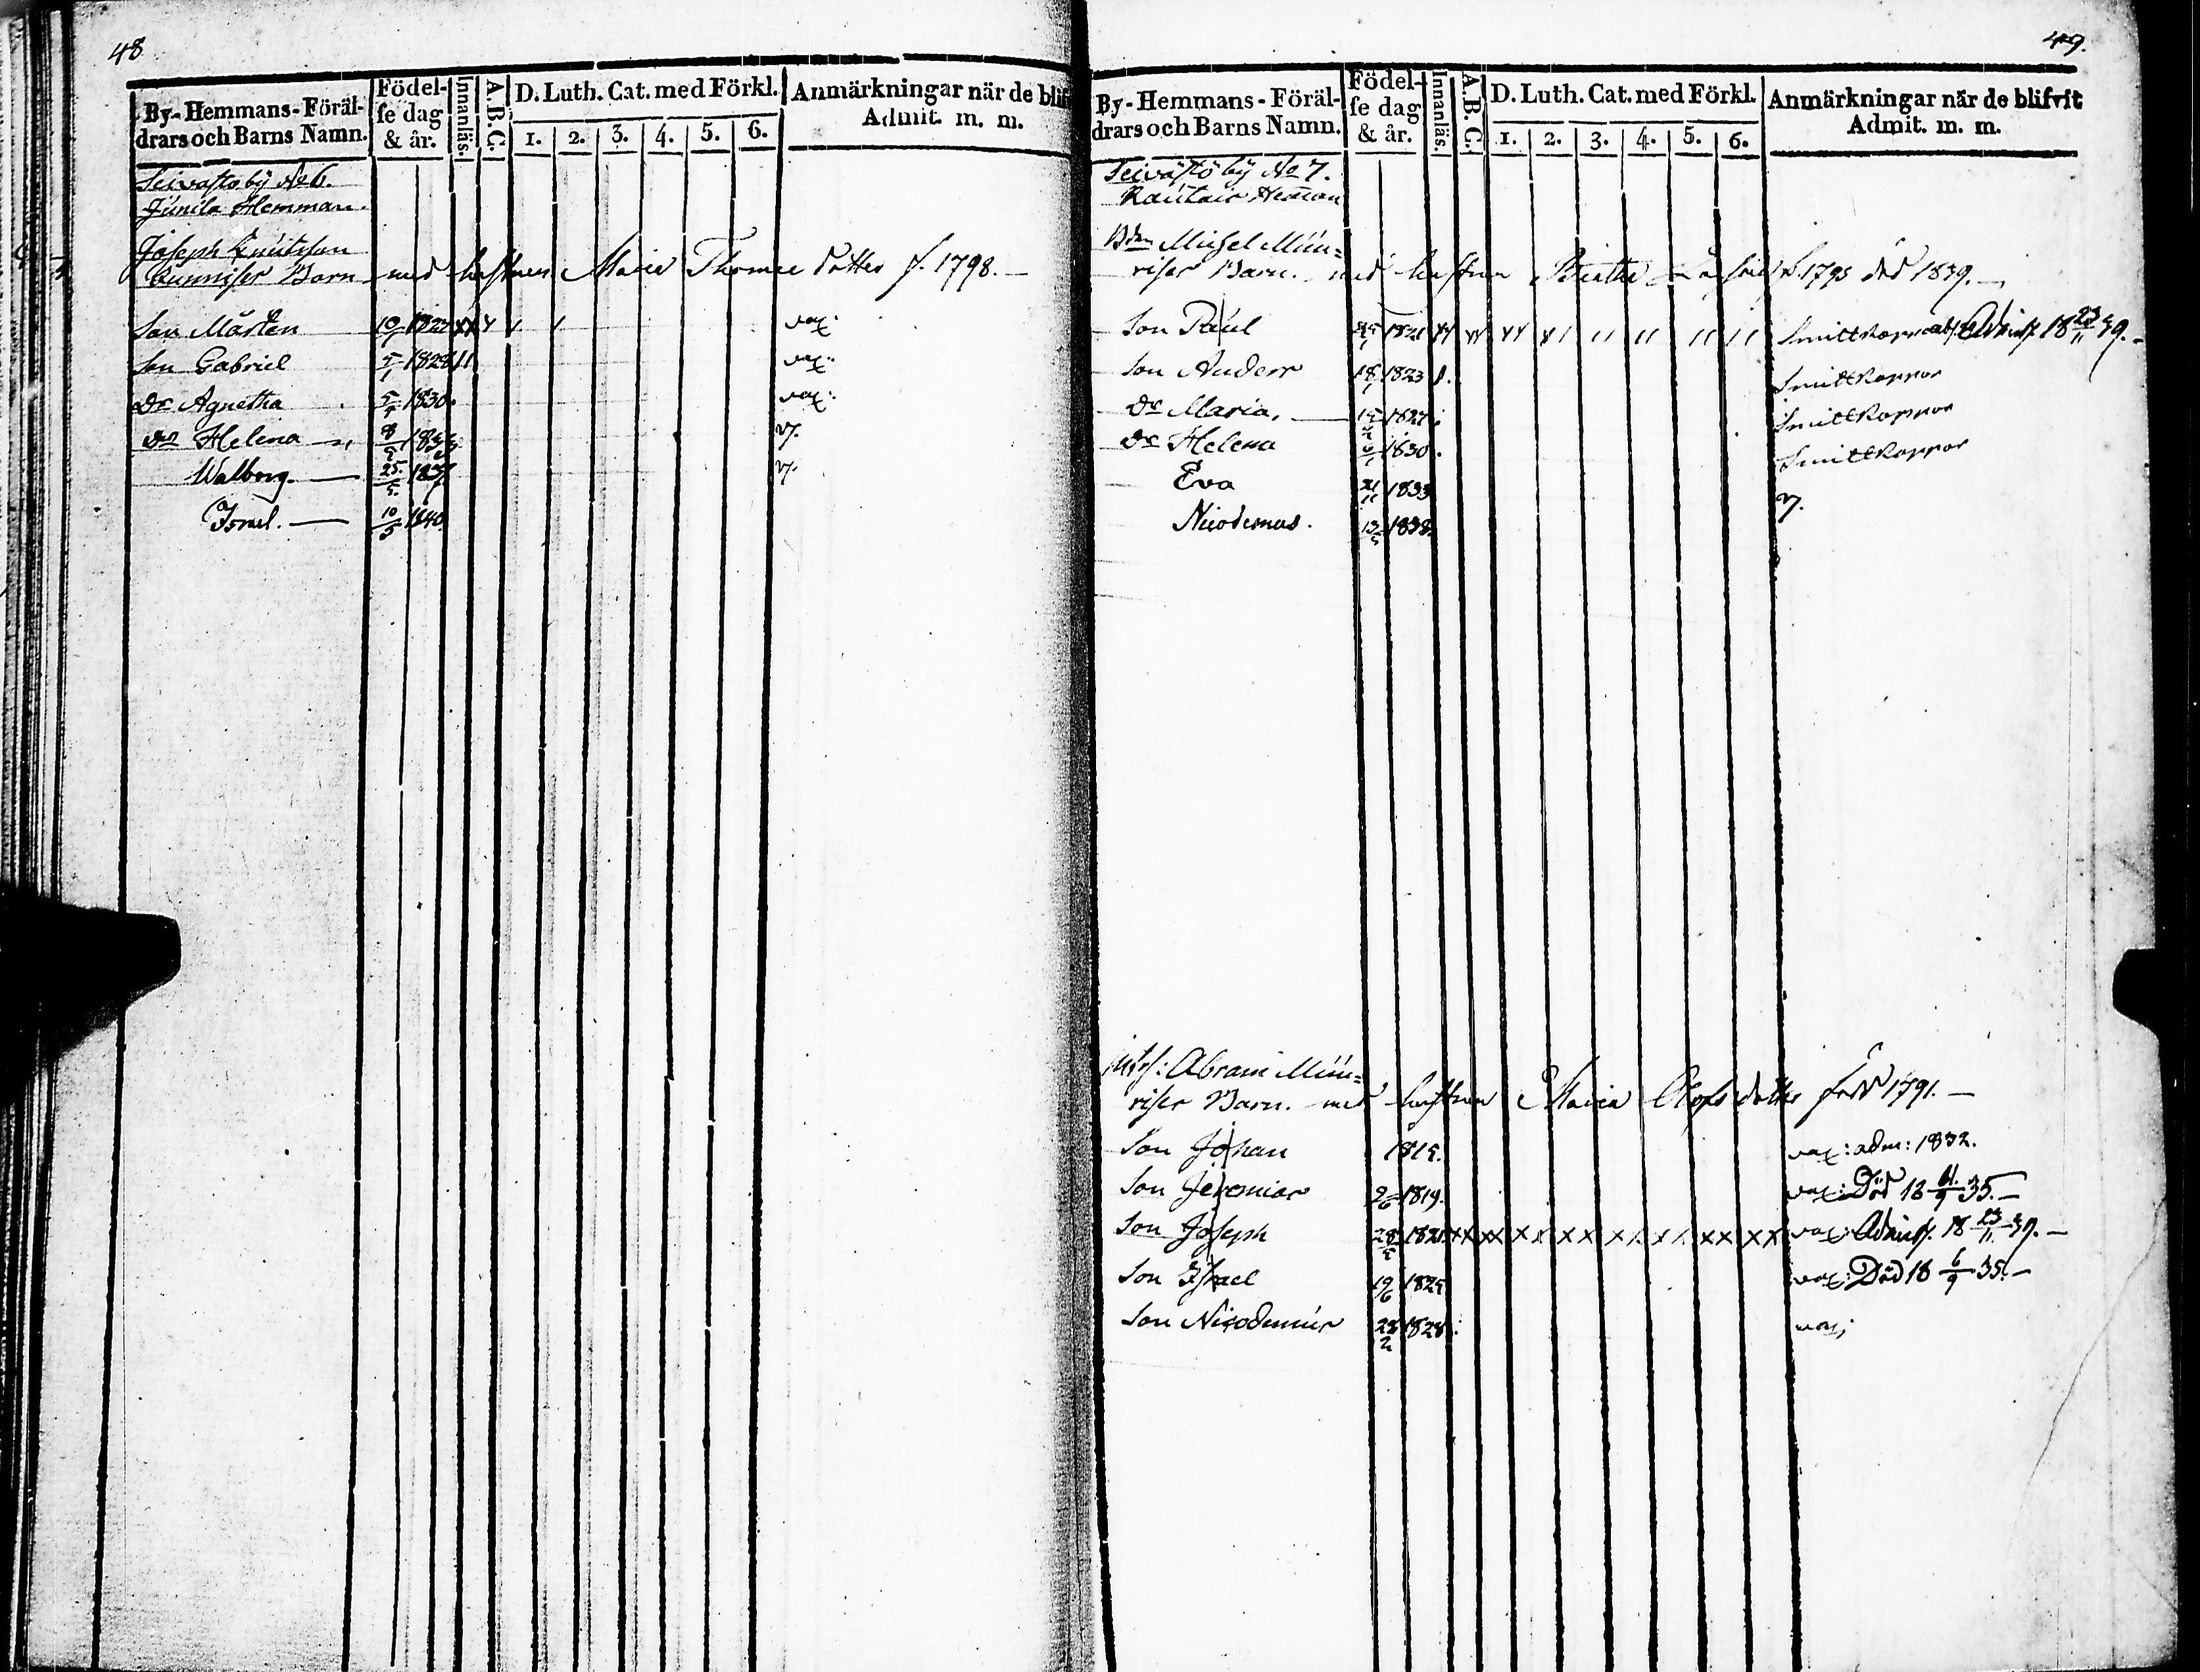 48
By-Hemmans-Föräl-
drars och Barns Namn.
Födel-
se dag
& år.
Innanläs.
A.B.C.
D. Luth. Cat. med Förkl.
1. 2. 3. 4. 5. 6.
Anmärkningar när de blif
Admit. m. m.
Seivästö bÿ No 6.
Junila Hemman.
Joseph
Barn med hustrun Maria Thomae dotter f. 1798. —
Son Mårten 10 1827 xx vax:
Son Gabriel 5/1 1828 11 vax:
Dr Agnetha 1830. vax:
Dr Helena 8 v.
Walborg. — 25/5. 1837 v.
Israel. — 10/5 1840.
49.
By-Hemmans-Föräl-
drars och Barns Namn.
Födel-
se dag
& år.
Innanläs.
A.B.C.
D. Luth. Cat. med Förkl.
1. 2. 3. 4. 5. 6.
Anmärkningar när de blifvit
Admit. m. m.
Seivästö bÿ No 7.
Rautais Hem̅an
Bden Michel Müü=
rises Barn. med hustrun f. 1795 död 1839. —
Son Paul 1821 Smittkoppor Admitt. 18 23/11 39. —
Son Anders 18/1 1823 Smittkoppor
Dr Maria. — 1827. Smittkoppor
Dr Helena 1830. Smittkoppor
Eva 21/11 1833 v.
Nicodemus. 13/5 1838.
Abram Müü=
rises Barn. med hustrun Maria Olofs dotter född 1791. —
Son Johan 1815. vax: adm: 1832.
Son Jeremias 9/6 1819. vax: Död 18 /9 35. —
Son Joseph 28/5 1821 xx xx x x x x x x x x x x x x vax: Admitt. 18 23/11 39. —
Son Israel 19/6 1825 vax: Död 18 6/9 35. —
Son Nicodemus 28/2 1828. vax;